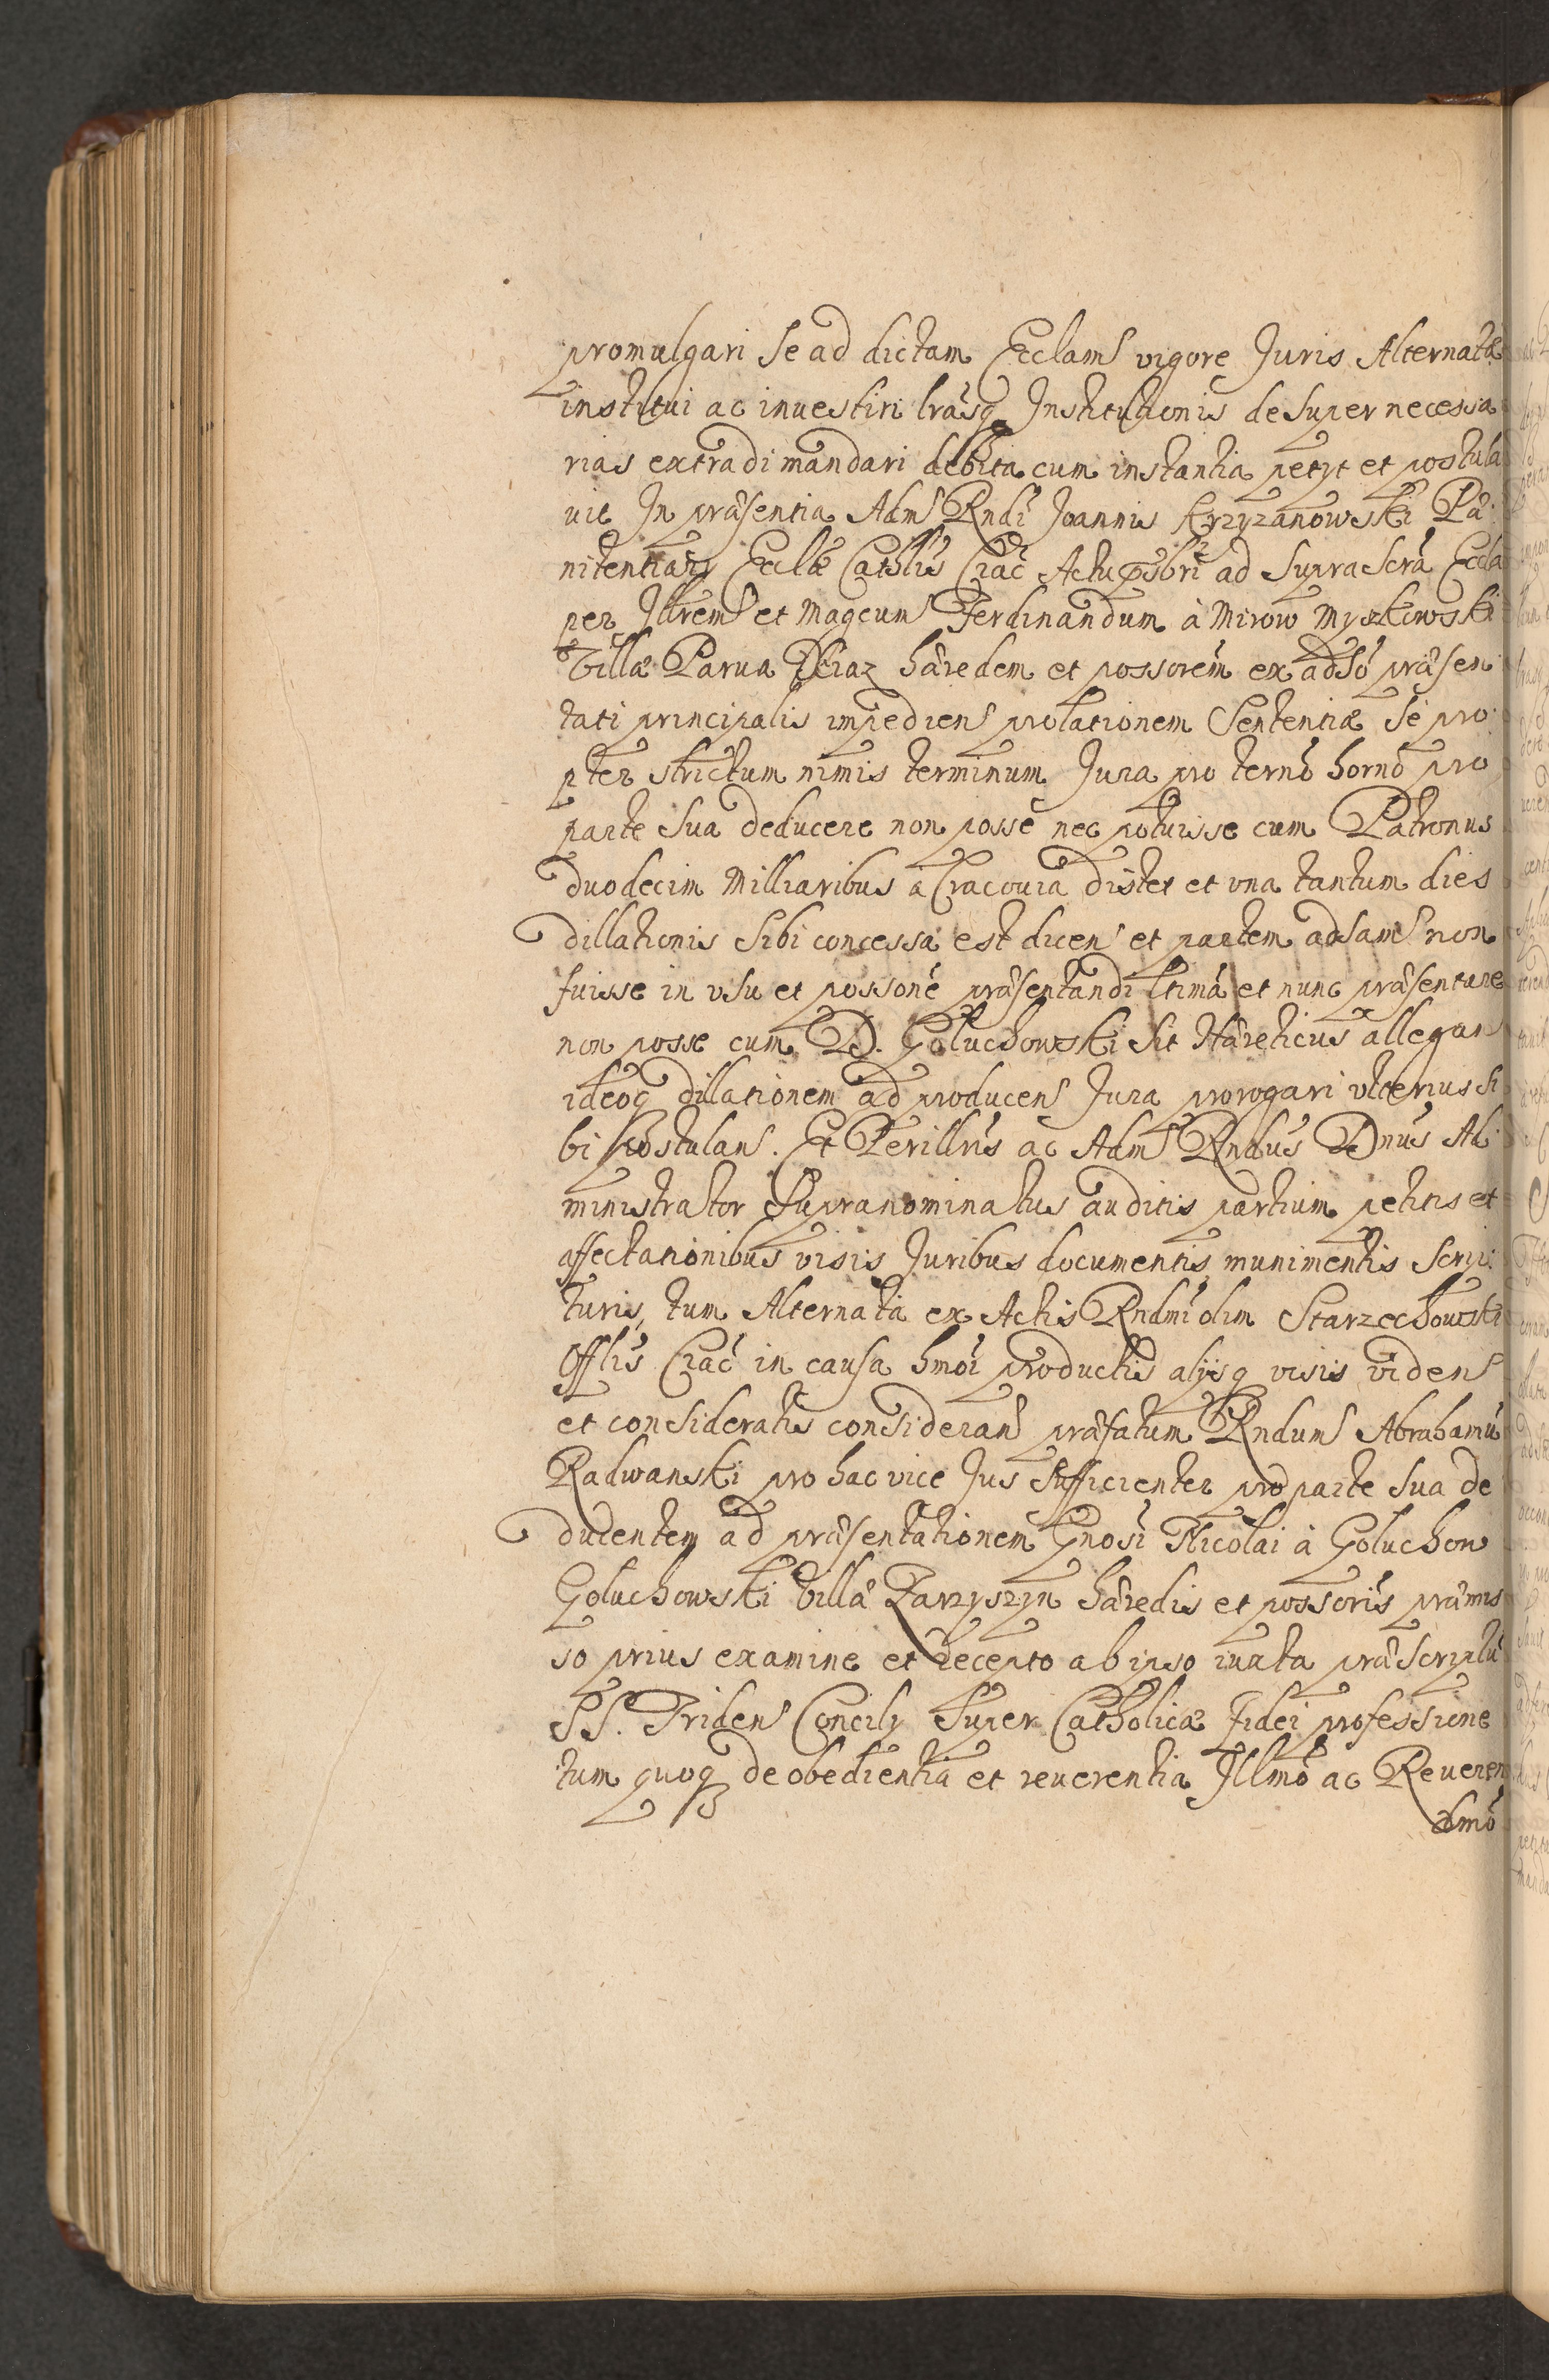 promulgari Se ad dictam Ecclam vigore Juris Alternatæ
institui ac inuestiri lrasq Institutionis desuper necessa
rias extradi mandari debita cum instantia petyt et postula
uit In præsentia Adm Rndi Joannis Krzyzanowski Pæ:
nitentiarij Ecclæ Cathlis Crac Actu psbri ad Suprascra Eccla
per Illrem et Magcum Ferdinandum à Mirow Myszkowski
Villæ Parua hæredem et possorem ex adso præsen
tati principalis impediens prolationem Sententiæ Se pro:
pter strictum nimis terminum Jura pro terno horno pro
parte Sua deducere non posse nec potuisse cum Patronus
duodecim Milliaribus à Cracouia distet et vna tantum dies
dillationis Sibi concessa est dicens et partem adsam non
fuisse in vsu et possone præsentandi ltima et nunc præsentare
non posse cum D. Goluchowski Sit Hæreticus allegans
ideoq dillationem ad producens Jura prorogari vlterius Si
bi postulans. Et Perillris ac Adm Rndus Dnus Ad:
ministrator Supranominatus auditis partium petitis et
affectationibus visis Juribus documentis munimentis Scrip:
turis, tum Alternata ex Actis Rndmi olim Starzechowski
Offlis Crac in causa hmoi productis alijsq visis videns
et consideratis considerans præfatum Rndum Abrahamu
Radwanski pro hac vice Jus Sufficienter pro parte Sua de
ducentem ad præsentationem Gnosi Nicolai à Goluchow
Goluchowski Villæ Parzyszyn hæredis et possoris præmis
so prius examine et recepto ab ipso iuxta præscriptu
SS. Triden Concily Super Catholicæ fidei professione
tum quoq de obedientia et reuerentia Illmo ac Reueren
dmo